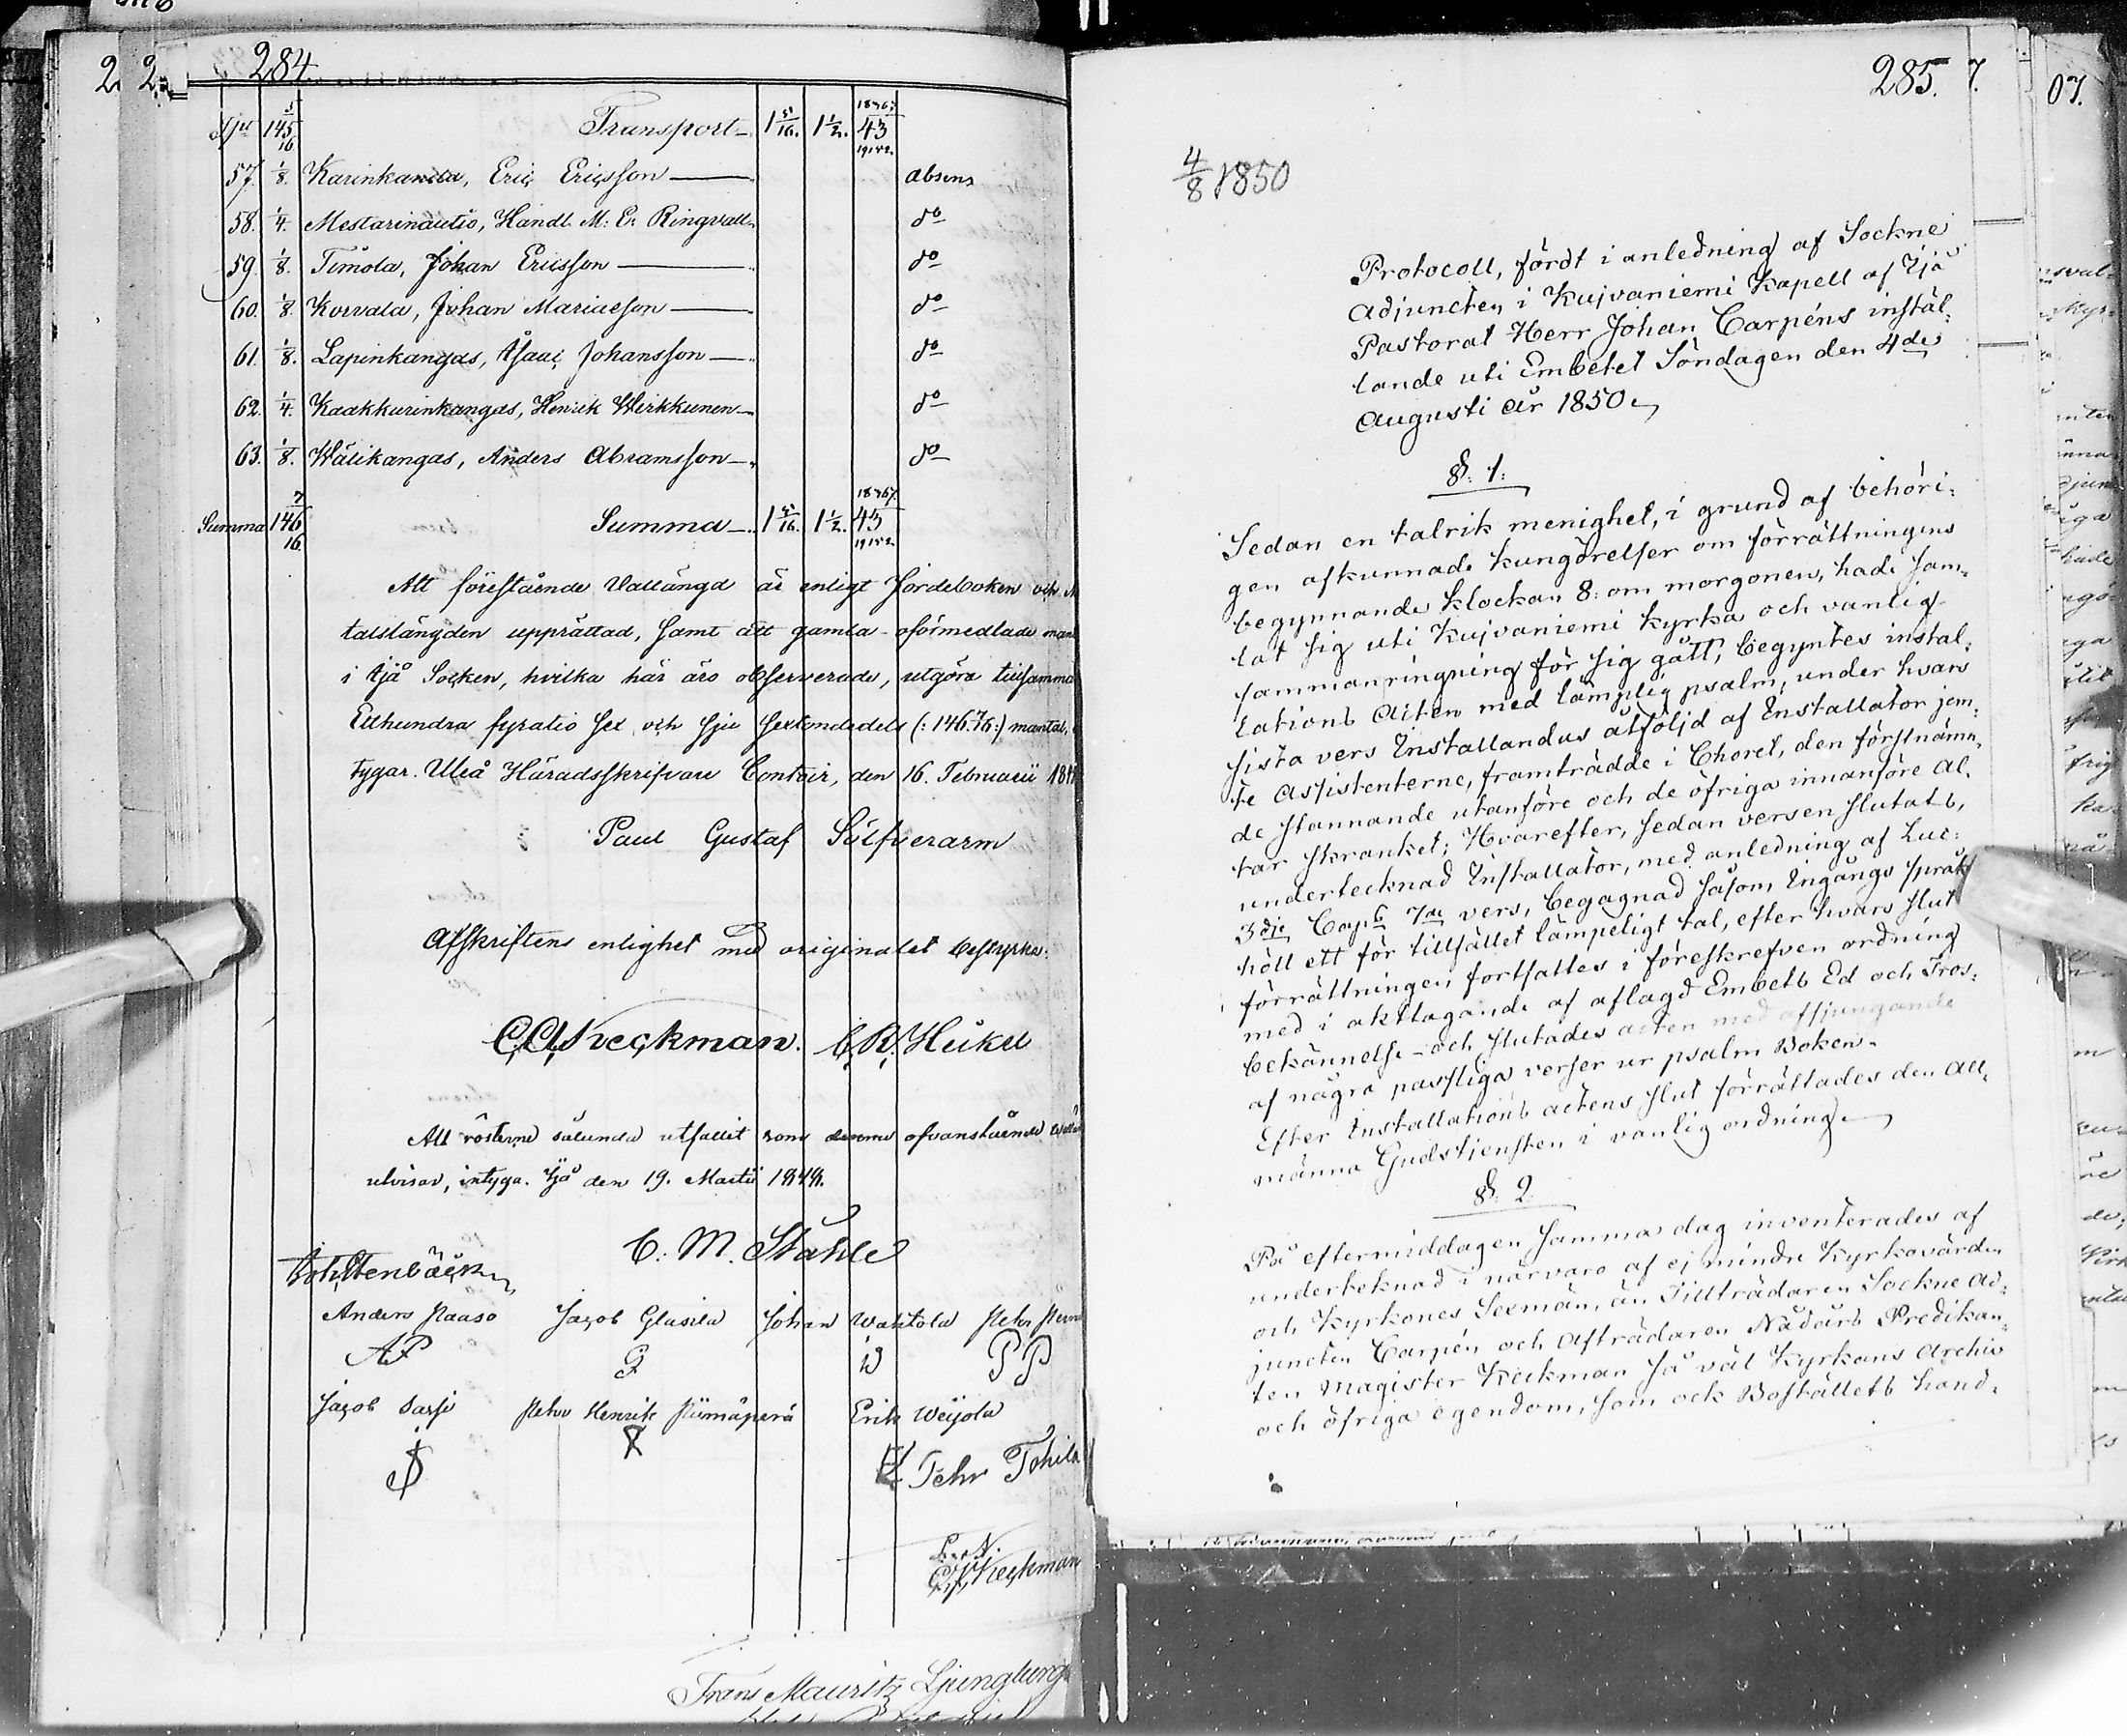 284.
Transport 1 5/16. 1 1/2. 43
57. 1/8. Karinkanta, Eric Ericsson absens
58. 1/4. Mestarinautio, Handl. M: Er. Ringvall do
59. 1/8. Timola, Johan Ericsson do
60. 1/8. Korvala, Johan Mariaeson do
61. 1/8. Lapinkangas, Isaac Johansson do
62. 1/4. Kaakkurinkangas, Henrik Wirkkunen do
63. 1/8. Wälikangas, Anders Abramsson do
Summa 146 7/16 Summa 1 5/16. 1 1/2. 43
Att förestående Vallängd är enligt Jordeboken och
talslängden upprättad, samt att gamla oförmedlade
i Ijå Socken, hvilka här äro observerade, utgöra tillsamma
Etthundra fyratio sex och sju sextondedels (: 146 7/16 :) mantal,
tygar. Uleå Häradsskrifvare Contoir, den 16. Februarii
Paul Gustaf Silfverarm
Afskriftens enlighet med originalet bestyrka:
C. A. Keckman. C. R. Heikel
Att rösterne sålunda utfallit som denne ofvanstående
utvisar, intyga. Ijå den 19. Martii 1848.
C. M. Ståhle
Joh. Stenbäck
Anders Paaso Jacob Glasila Johan Wattola Petr
AP G W PP
Jacob Sassi Petter Henrik Piimäperä Erik Weijola
Pehr Tohila
Keckman
Frans Mauritz Ljungberg
285.
4/8 1850
Protocoll, fördt i anledning af Sockne
Adjuncten i Kuivaniemi Kapell af Ijå
Pastorat Herr Johan Carpéns instal-
lande uti Embetet Söndagen den 4de
Augusti år 1850.
§. 1.
Sedan en talrik menighet, i grund af behöri-
gen afkunnade kungörelser om förrättningens
begynnande klockan 8: om morgonen, hade sam-
lat sig uti Kuivaniemi kyrka och vanlig
sammanringning för sig gått, begyntes instal-
lations Acten med lämplig psalm, under hvars
sista vers Installandus åtföljd af Installator jem-
te Assistenterne, framträdde i Choret, den förstnämn-
de stannande utanföre och de öfriga innanföre al-
tar skranket; Hvarefter, sedan versen slutats,
undertecknad Installator, med anledning af Luc:
3dje Cap. 7de vers, begagnad såsom Ingångs språk
höll ett för tillfället lämpeligt tal, efter hvars slut
förrättningen fortsattes i föreskrefven ordning
med i akttagande af aflagd Embets Ed och Tros-
bekännelse - och slutades acten med afsjungande
af några passliga verser ur psalm Boken.
Efter Installations actens slut förrättades den all-
männa Gudstjensten i vanlig ordning.
§. 2.
På eftermiddagen samma dag inventerades af
undertecknad i närvaro af ej mindre Kyrkovärden
och Kyrkones Sexmän, än Tillträdaren Sockne Ad-
juncten Carpén och Afträdaren Nådårs Predikan-
ten Magister Keckman så väl Kyrkans Archiv
och öfriga egendom, som ock Boställets hand-